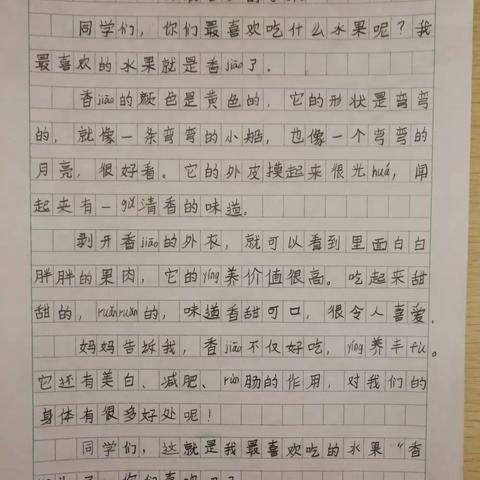 同学们，你们最喜欢吃什么水果呢？我
最喜欢的水果就是香jiāo了。
香jiāo的颜色是黄色的，它的形状是弯弯
的，就像一条弯弯的小船，也像一个弯弯的
月亮，很好看。它的外皮摸起来很光huá，闻
起来有一gǔ清香的味道。
剥开香jiāo的外衣，就可以看到里面白白
胖胖的果肉，它的yíng养价值很高。吃起来甜
甜的，ruǎnruǎn的，味道香甜可口，很令人喜爱。
妈妈告诉我，香jiāo不仅好吃，yíng养丰fù。
它还有美白、减肥、rùn肠的作用，对我们的
身体有很多好处呢！
同学们，这就是我最喜欢吃的水果“香